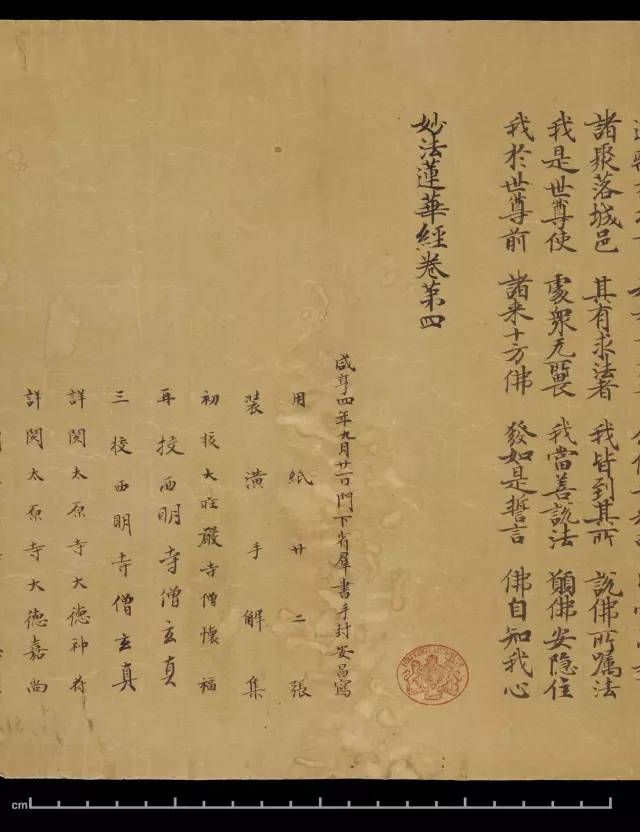 諸聚落城邑 其有求法者 我皆到其所 說佛所囑法
我是世尊使 處衆无所畏 我當善說法 願佛安隐住
我於世尊前 諸来十方佛 發如是誓言 佛自知我心
妙法蓮華經卷第四
咸亨四年九月廿一日門下省羣書手封安昌寫
用紙廿二張
裝潢手解集
初校大莊嚴寺僧懷福
再校西明寺僧玄真
三校西明寺僧玄真
詳閱太原寺大德神苻
詳閱太原寺大德嘉尚
cm